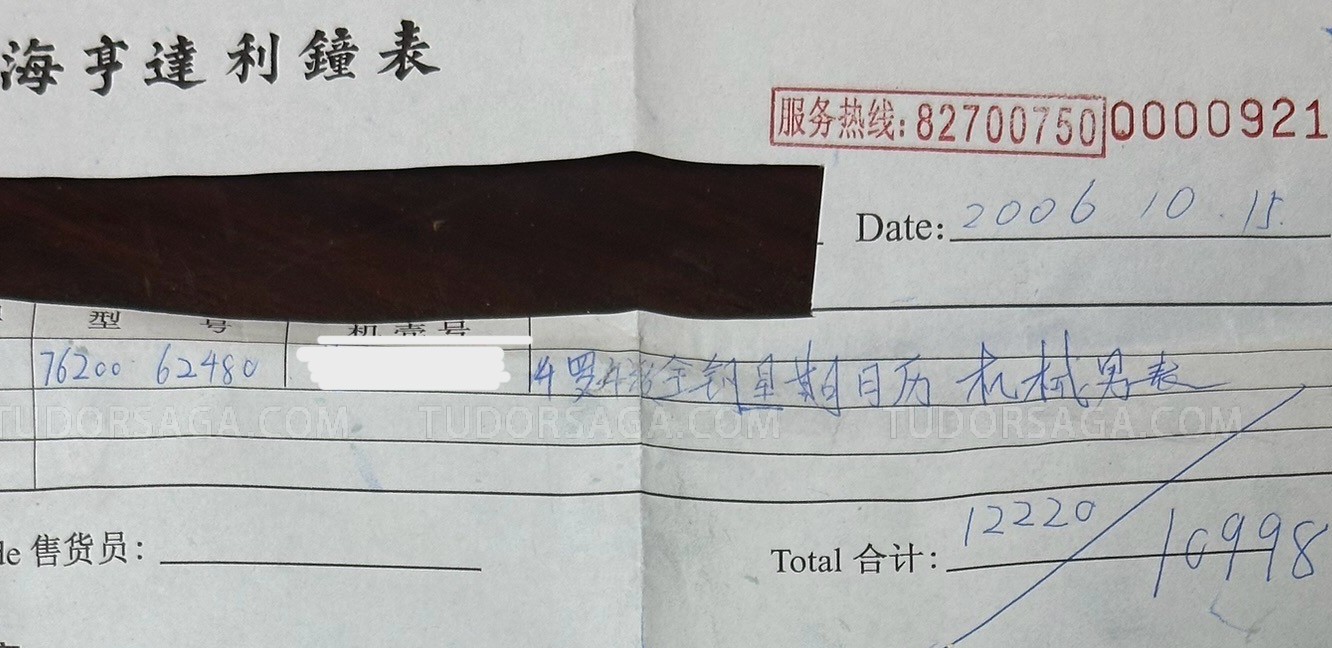 海亨達利鐘表
服务热线:82700750 0000921
Date: 2006 10.15.
型 号 机壳号
76200 62480 全钢星期日历 机械男表
TUDORSAGA.COM TUDORSAGA.COM TUDORSAGA.COM
le 售货员:
Total 合计: 12220 10998